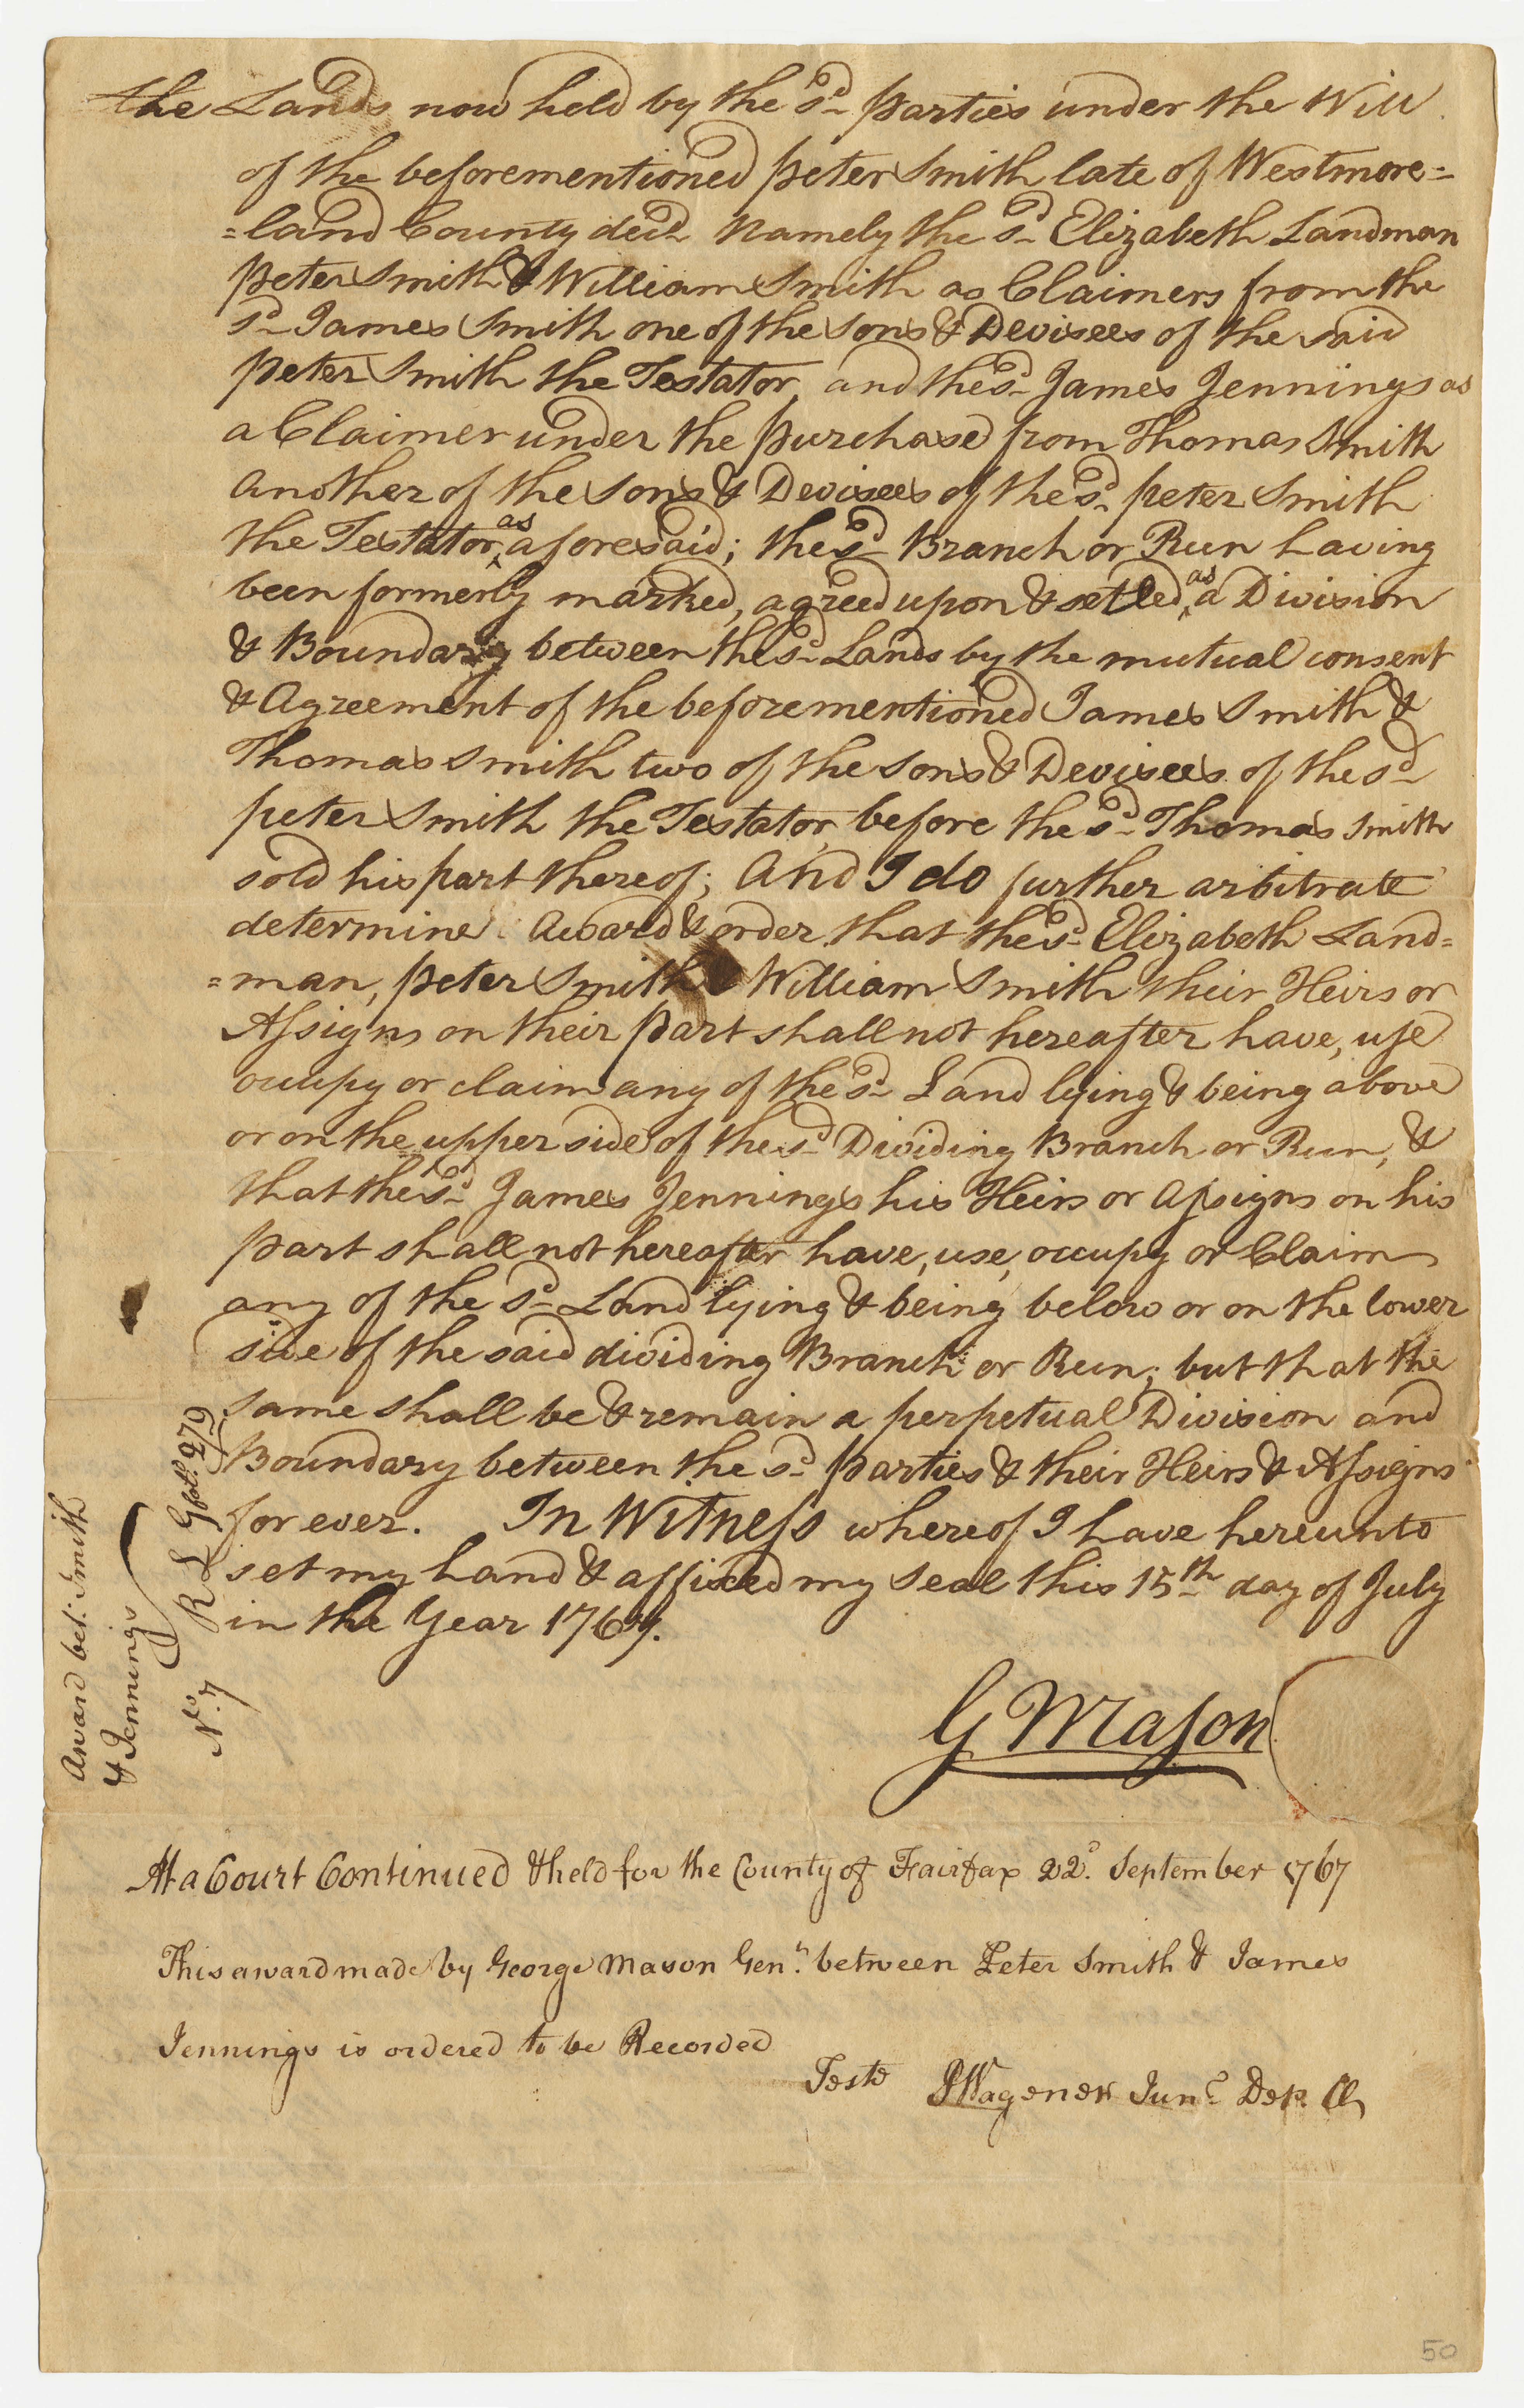 the Lands now held by the sd. parties under the Will
of the beforementioned peter Smith late of Westmore=
=land County decd. Namely the sd. Elizabeth Landman
peter Smith & William Smith as Claimers from the
sd. James Smith one of the sons & Devisees of the said
peter Smith the Testator, and the sd. James Jennings as
a Claimer under the purchase from Thomas Smith
another of the sons & Devisees of the sd. peter Smith
the Testator, as aforesaid; the sd. Branch or Run having
been formerly marked, agreed upon & setled, as a Division
& Boundary between the sd. Lands by the mutual consent
& Agreement of the beforementioned James Smith &
Thomas Smith two of the sons & Devisees of the sd.
peter Smith the Testator, before the sd. Thomas Smith
sold his part thereof; And I do further arbitrate
determine Award & order that the sd. Elizabeth Land=
=man, peter Smith & William Smith their Heirs or
Assigns on their part shall not hereafter have, use
occupy or claim any of the sd. Land lying & being above
or on the upper side of the sd. Dividing Branch or Run, &
that the sd. James Jennings his Heirs or Assigns on his
part shall not hereafter have, use, occupy or Claim
any of the sd. Land lying & being below or on the lower
side of the said dividing Branch or Run; but that the
same shall be & remain a perpetual Division and
Boundary between the sd. parties & their Heirs & Assigns
for ever. In Witness whereof I have hereunto
set my hand & affixed my seal this 15th day of July
in the Year 1767.
G Mason
Award bet: Smith
& Jennings
R L G fol. 279
No. 7
At a Court Continued & held for the County of Fairfax 22d. September 1767
This award made by George Mason Gent. between Peter Smith & James
Jennings is ordered to be Recorded
Teste PWagener Junr. Dep. Cl
50